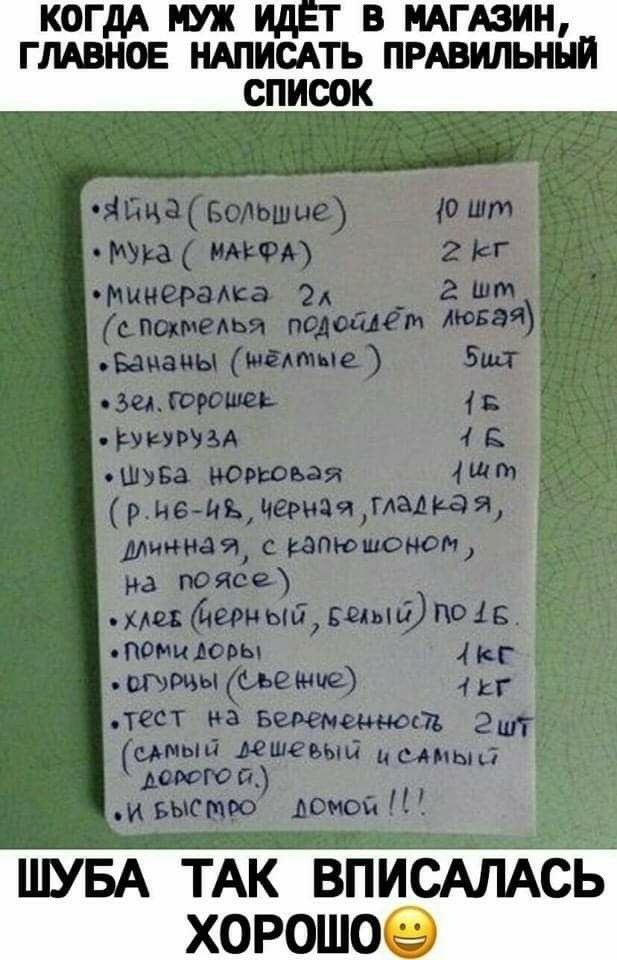 КОГДА МУЖ ИДЁТ В МАГАЗИН,
ГЛАВНОЕ НАПИСАТЬ ПРАВИЛЬНЫЙ
СПИСОК
•Яйца (Большие) 10 шт
•Мука ( МАКФА) 2 кг
•Минералка 2л 2 шт
(с похмелья подойдёт любая)
•Бананы (жёлтые) 5шт
•Зел. горошек 1 Б
•Кукуруза 1 Б
•Шуба норковая 1шт
(р.46-48, черная, гладкая,
длинная, с капюшоном,
на поясе)
•хлеб (черный, белый) по 1Б.
•помидоры 1кг
•огурцы (свежие) 1кг
•тест на беременность 2шт
(самый дешевый и самый
дорогой.)
•И быстро домой!!!
ШУБА ТАК ВПИСАЛАСЬ
ХОРОШО😀